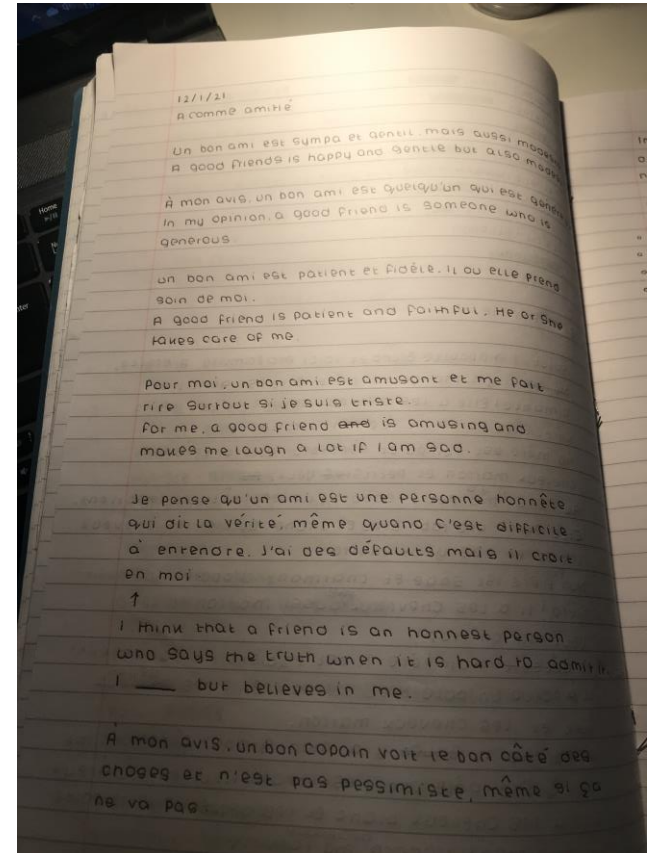 12/1/21
A comme amitié
Un bon ami est sympa et gentil. mais aussi
A good friends is happy and gentle but also
À mon avis, un bon ami est quelqu'un qui est
In my opinion, a good friend is someone who is
generous
un bon ami est patient et fidèle. Il ou elle prend
soin de moi.
A good friend is patient and faithful. He or she
takes care of me
Pour moi, un bon ami est amusant et me fait
rire surtout si je suis triste.
for me, a good friend and is amusing and
makes me laugh a lot if I am sad.
Je pense qu'un ami est une personne honnête
qui dit la vérité, même quand c'est difficile
à entendre. J'ai des défauts mais il croit
en moi
↑
I think that a friend is an honnest person
who says the truth when it is hard to admit it.
I ___ but believes in me.
À mon avis, un bon copain voit le bon côté des
choses et n'est pas pessimiste, même si ça
ne va pas.
Home